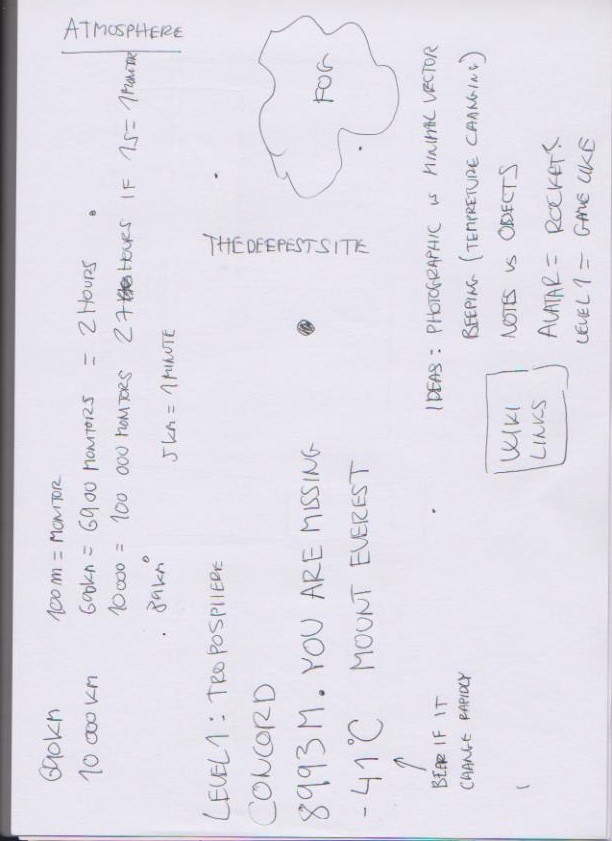 ATMOSPHERE
FOG
THEDEEPESTSITE
690KM
10 000 KM
100m = MONITOR
690KM = 6900 MONITORS = 2 HOURS
10000 = 100 000 MONITORS 27 HOURS IF 1S = 1 MONITOR
5KM = 1 MINUTE
LEVEL 1 : TROPOSPHERE
CONCORD
8993 M. YOU ARE MISSING
-41°C MOUNT EVEREST
IF IT
CHANGE RAPIDLY
IDEAS : PHOTOGRAPHIC VS MINIMAL VECTOR
BEEPING (TEMPRETURE CHANGING)
NOTES VS OBJECTS
AVATAR = ROCKET?
LEVEL 1 = GAME LIKE
WIKI
LINKS